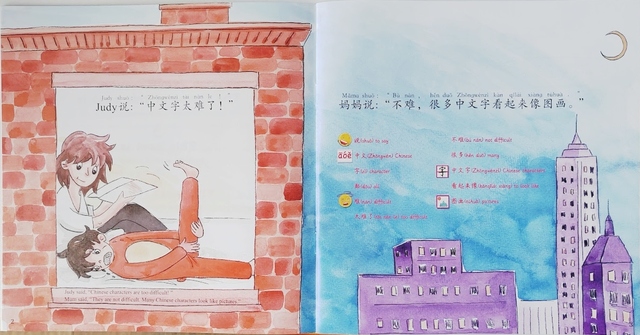 Judy shuō: "Zhōngwénzì tài nán le!"
Judy说:“中文字太难了!”
Judy said, "Chinese characters are too difficult!"
Mum said, "They are not difficult. Many Chinese characters look like pictures."
Māma shuō: "Bù nán, hěn duō Zhōngwénzì kàn qǐlái xiàng túhuà."
妈妈说:“不难,很多中文字看起来像图画。”
说(shuō) to say
āóê 中文(Zhōngwén) Chinese
字(zì) character
难(nán) difficult
不难(bù nán) not difficult
很多(hěn duō) many
字 中文字(Zhōngwénzì) Chinese characters
看起来像(kànqǐlái xiàng) to look like
图画(túhuà) pictures